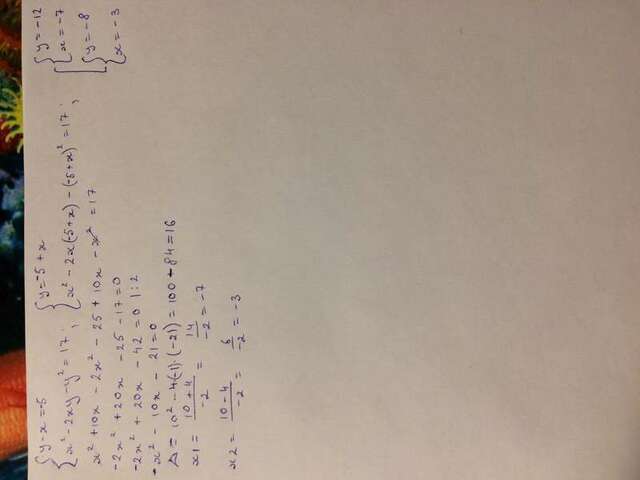 {y-x=-5 {y=-5+x [{y=-12
{x²-2xy-y²=17; {x²-2x(-5+x)-(-5+x)²=17; {x=-7
x²+10x-2x²-25+10x-x²=17 {y=-8
-2x²+20x-25-17=0 {x=-3
-2x²+20x-42=0 |:2
-x²-10x-21=0
Δ=10²-4(-1)·(-21)=100-84=16
x1=\frac{10+4}{-2}=\frac{14}{-2}=-7
x2=\frac{10-4}{-2}=\frac{6}{-2}=-3